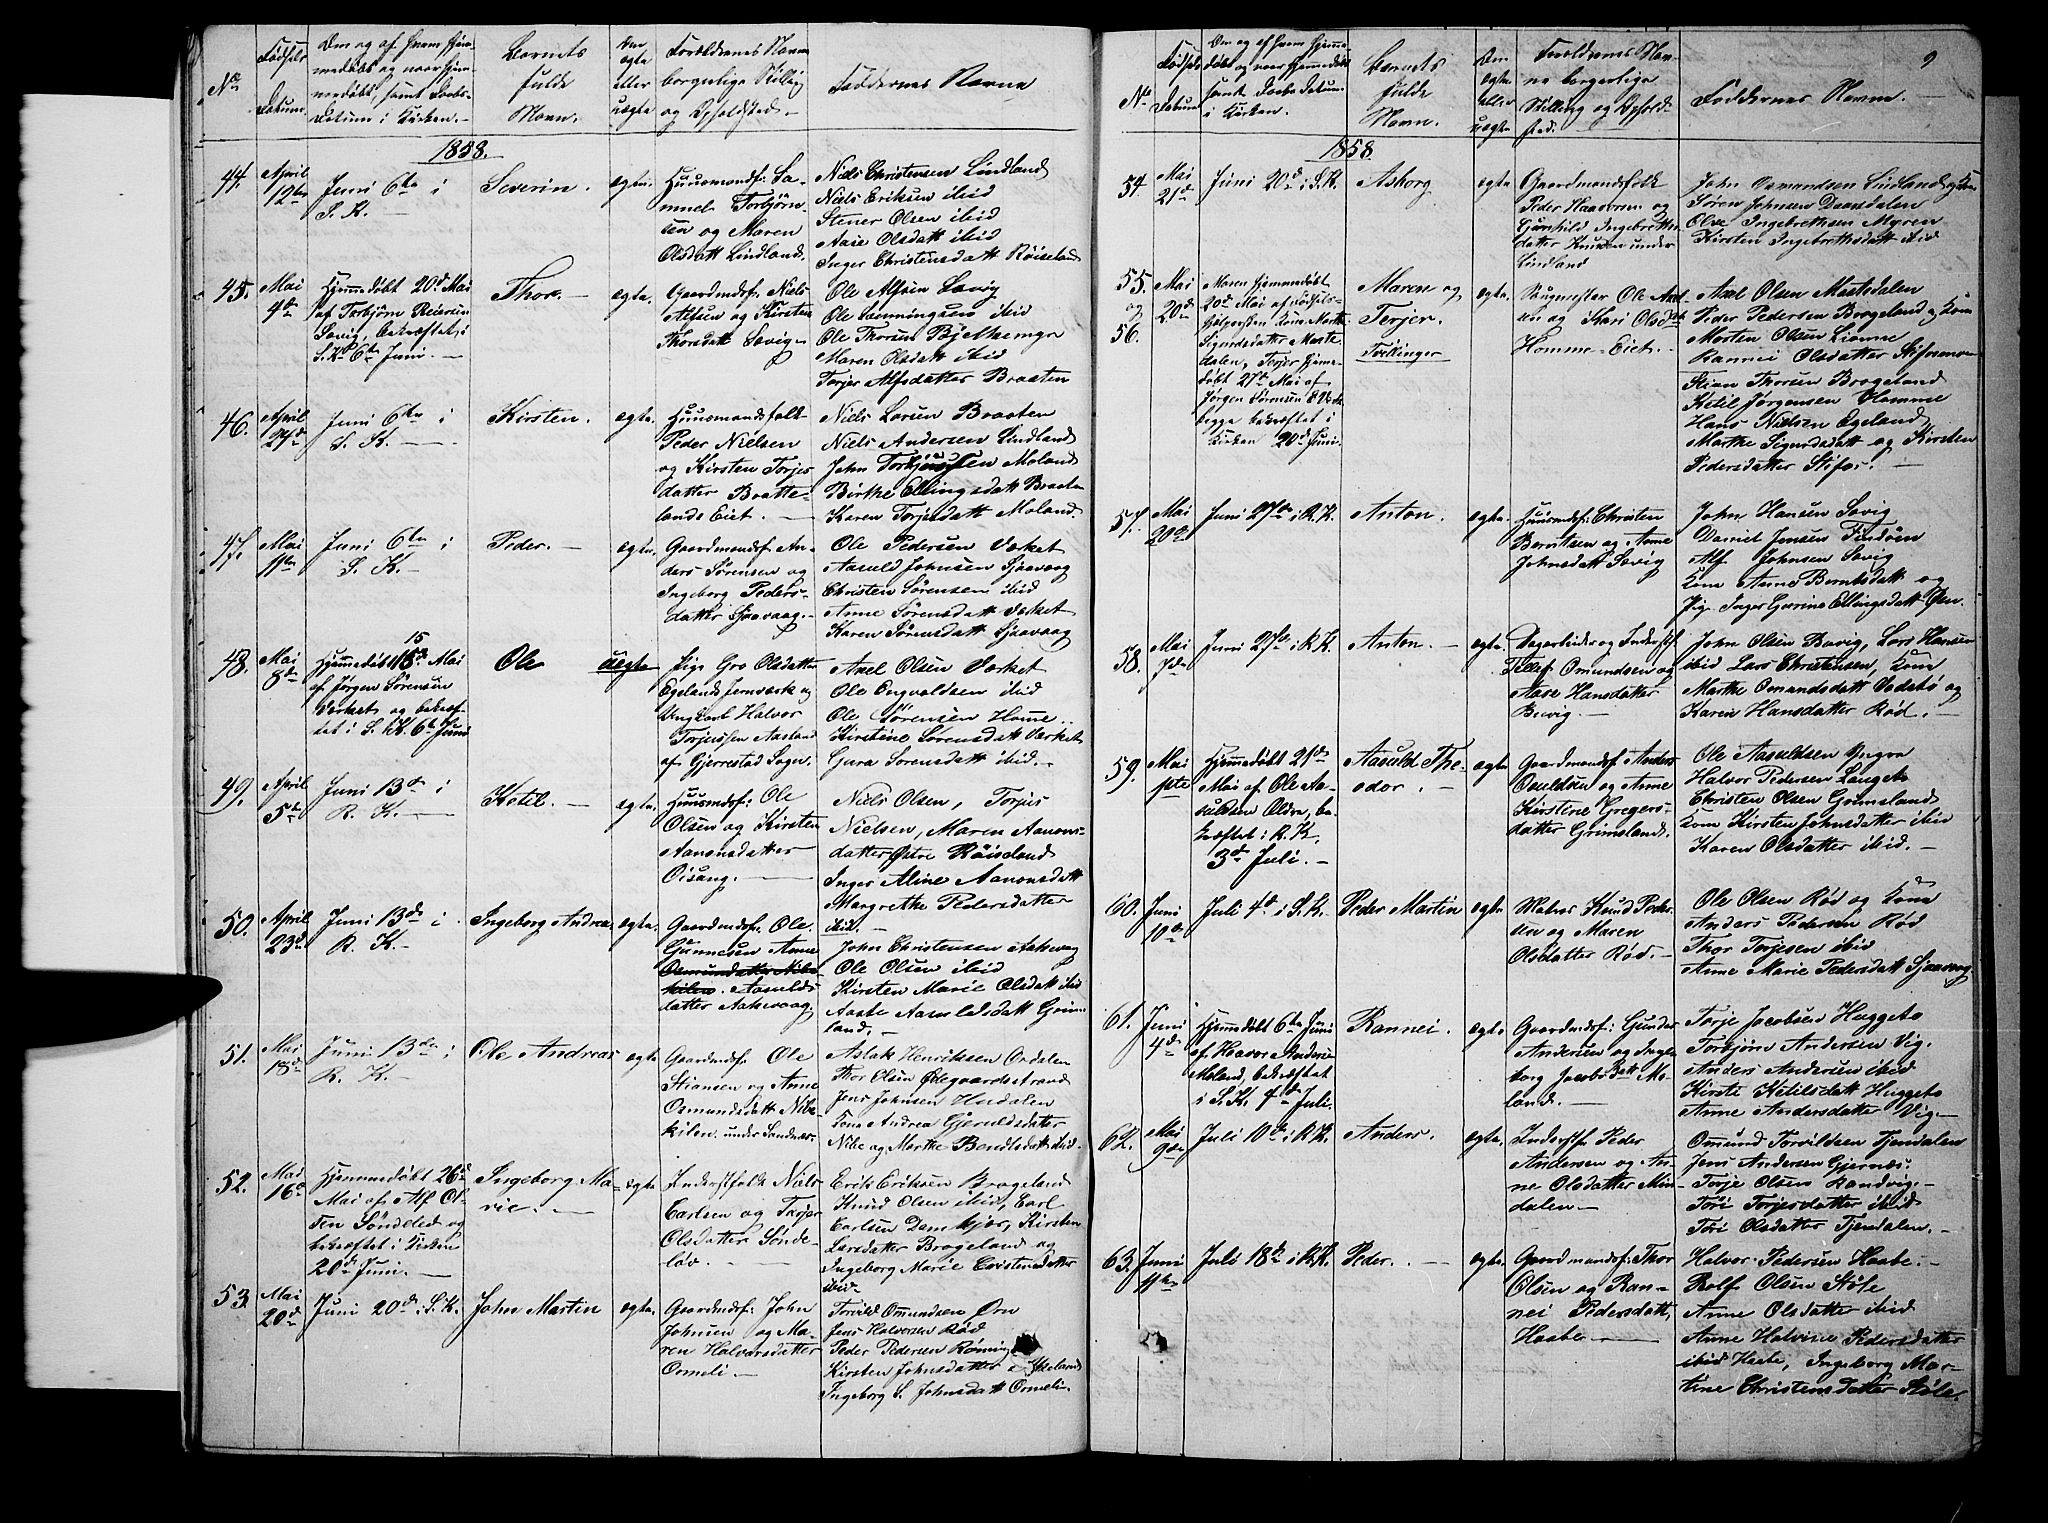 No
Fødsels
Datum.
Om og af hvem hjem-
medøbt og naar hjem-
medøbt, samt Daabs-
Datum i Kirken.
Barnets
fulde
Navn.
Om
ægte
eller
uægte
Forældrenes Navn
borgerlige Stilling
og Opholdsted.
Faddernes Navne
1858.
44.
April
12te
Juni 6te i
S. K.
Severin.
ægte.
Huusmandsf: Sa-
muel Torbjørn-
sen og Maren
Olsdatt Lindland.
Niels Christensen Lindland
Niels Eriksen ibid
Stener Olsen ibid
Aase Olsdatt ibid
Inger Christensdatt Røiseland
45.
Mai
4de
Hjemmedøbt 20d Mai
af Torbjørn Reiersen
Savig, bekræftet i
S. K. 6te Juni.
Thor.
ægte.
Gaardmdsf: Niels
Alfsen og Kirsten
Thorsdatt Savig
Ole Alfsen Savig
Ole Lonningsen ibid
Ole Thorsen
Maren Olsdatt ibid
Torjer Alfsdatter Braaten
46.
April
24de
Juni 6te i
S. K.
Kirsten.
ægte.
Huusmandsfolk
Peder Nielsen
og Kirsten Torjes
datter Bratte-
lands Eiet.
Niels Larsen Braaten
Niels Andersen Lindland
John Torbjørnsen Moland
Birthe Ellingsdatt Braaten
Karen Torjesdatt Moland.
47.
Mai
11te
Juni 6te i
S. K.
Peder.
ægte.
Gaardmandsf: An-
ders Sørensen og
Ingeborg Peders-
datter Sjaavaag.
Ole Pedersen Værket
Aasuld Johnsen Sjaavaag
Christen Sørensen ibid
Anne Sørensdatt Værket
Karen Sørensdatt Sjaavaag
48.
Mai
8de
15
Hjemmedøbt 15de Mai
af Jørgen Sørensen
Værket og bekræf-
tet i S. K. 6te Juni
Ole
uægte
Pige Gro Olsdatter
Egelands Jernværk og
Ungkarl Halvor
Torjussen Aasland
af Gjerrestad Sogn.
Axel Olsen Værket
Ole Engvaldsen ibid
Ole Sørensen Home
Kirstine Sørensdatt Værket
Gura Sørensdatt ibid.
49.
April
5te
Juni 13de i
R. K.
Ketil.
ægte.
Huusmdsf: Ole
Olsen og Kirsten
Aanonsdatter
Oisang.
Niels Olsen, Torjus
Nielsen, Maren Aanons-
datter Østre Røiseland
Inger Aline Aanonsdatt
Margrethe Pedersdatter
ibid.
50.
April
23de
Juni 13de i
R. K.
Ingeborg Andrea.
ægte.
Gaardmdsf: Ole
Gunnesen Anne
Osmundsdatter Nibe-
kilen. Aasulds
datter Aakvaag.
John Christensen Aakvaag
Ole Olsen ibid
Kirsten Marie Olsdatt ibid
Aaste Aasuldsdatt Grims
land.
51.
Mai
18de
Juni 13de i
R. K.
Ole Andreas
ægte
Gaardmdsf. Ole
Stiansen og Anne
Osmundsdatt Nibe-
kilen under Sandnæs
Aslak Henriksen Oxdalen
Thor Olsen Ødegaardsstrand
Jens Johnsen Husdalen
Tone Andrea Gjeruldsdatter
Nibe og Marthe Bendtsdatt ibid.
52.
Mai
16de
Hjemmedøbt 26de
Mai af Alf Ol-
sen Søndeled og
bekræftet i Kirken
20de Juni.
Ingeborg Ma-
rie.
ægte
Inderstfolk Niels
Carlsen og Torjer
Olsdatter Sønde-
løv.
Erik Eriksen Brogeland
Knud Olsen ibid, Carl
Carlsen Damkjær, Kirsten
Larsdatter Brogeland og
Ingeborg Marie Christensdatter
ibid
53.
Mai
20de
Juni 20de i S. K.
John Martin
ægte.
Gaardmdsf: John
Johnsen og Ma-
ren Halvorsdatter
Ormeli.
Torvild Omundsen Ørn
Jens Halvorsen Rød
Peder Pedersen Rønning
Kirsten Johnsdatter Askeland
Ingeborg S. Johnsdatt Ormeli.
9
No
Fødsels
Datum
Om og af hvem hjemme-
døbt og naar hjemmedøbt
samt Daabs Datum
i Kirken.
Barnets
fulde
Navn.
Om
ægte
eller
uægte
Forældrenes Nav-
ne borgerlige
Stilling og Ophold-
sted.
Faddernes Navne.
1858.
54
Mai
21de
Juni 20de i S. K.
Asborg
ægte
Gaardmandsfolk
Peder Haavorsen og
Gunhild Ingebreths
datter Knuken under
Lindland
John Osmundsen Lindland og Kone
Søren Johnsen Daasdalen
Ole Ingebrethsen Myren
Kirsten Ingebrethsdatt ibid
55.
og
56.
Mai
20de
Maren hjemmedøbt
20de Mai af Fødsels-
hjælpersken Kone Marthe
Sigurdsdatter Maste
dalen, Torjer hjemme-
døbt 27de Mai af
Jørgen Sørensen E. Værk
begge bekræftet i
Kirken 20de Juni.
Maren og
Terjer.
Tvillinger
ægte.
Saugmester Ole Axel
sen og Kari Olsdatt
Homme-Eiet.
Axel Olsen Mastedalen
Peder Pedersen Brogeland og Kone
Morten Olsen Lionne
Rannei Olsdatter Stifosmoen
Stian Thorsen Brogeland
Ketil Jørgensen Homme
Hans Nielsen Egeland
Marthe Sigurdsdatt og Kirsten
Pedersdatter Stifos.
57.
Mai
20de
Juni 27de i R. K.
Anton.
ægte
Huusmdsf: Christen
Berntsen og Anne
Johnsdatt Savig
John Hansen Savig
Daniel Jensen Findøen
Alf Johnsen Savig
Kone Anne Berntsdatt og
Pige Inger Gurine Ellingsdatt Øen.
58.
Mai
7de
Juni 27de i R. K.
Anton.
ægte.
Dagarbeider og Inderstf.
Tellef Omundsen og
Aase Hansdatter
Buvig.
John Olsen Buvig, Lars Hansen
ibid Lars Christensen, Kone
Marthe Omundsdatt Vodstø og
Karen Hansdatter Rød.
59.
Mai
1ste
Hjemmedøbt 21de
Mai af Ole Aa-
suldsen Oldre, be-
kræftet i R. K.
3de Juli.
Aasuld The-
odor.
ægte
Gaardmandsf. Anders
Osuldsen og Anne
Kirstine Gregers-
datter Grimsland.
Ole Aasuldsen Yngva
Halvor Pedersen Langeto
Christen Olsen Grimsland
Kone Kirsten Johnsdatter ibid
Karen Olsdatter ibid.
60.
Juni
10de
Juli 4de i S. K.
Peder Martin
ægte
Matros Knud Peder
sen og Maren
Olsdatter Rød.
Ole Olsen Rød og Kone
Anders Pedersen Rød
Thor Torjesen ibid
Anne Marie Pedersdatt Sjaavaag
61.
Juni
4de
Hjemmedøbt 6te Juni
af Haavor Anders
Moland, bekræftet
i S. K. 4de Juli.
Rannei.
ægte
Gaardmdsf: Gunder
Andersen og Inge-
borg Jacobsdatt Mo-
land.
Torje Jacobsen Huggeto
Torbjørn Andersen Vig
Anders Andersen ibid
Kirste Ketilsdatt Huggeto
Anne Andersdatter Vig.
62.
Mai
9de
Juli 10de i R. K.
Anders.
ægte
Inderstf. Peder
Andersen og An-
ne Olsdatter Min-
dalen.
Omund Torvildsen Tjendalen
Jens Andersen Gjernæs.
Torje Olsen Randvig.
Tori Torjesdatter ibid
Tori Olsdatter Tjendalen.
63.
Juni
11te
Juli 18de i R. K.
Peder.
ægte.
Gaardmandsf: Thor
Olsen og Ran-
nei Pedersdatt
Haabe
Halvor Pedersen Haabe.
Rolf Olsen Støle
Anne Olsdatter ibid
Anne Halvine Pedersdatter
ibid Haabe, Ingeborg Mar-
tine Christensdatter Støle.